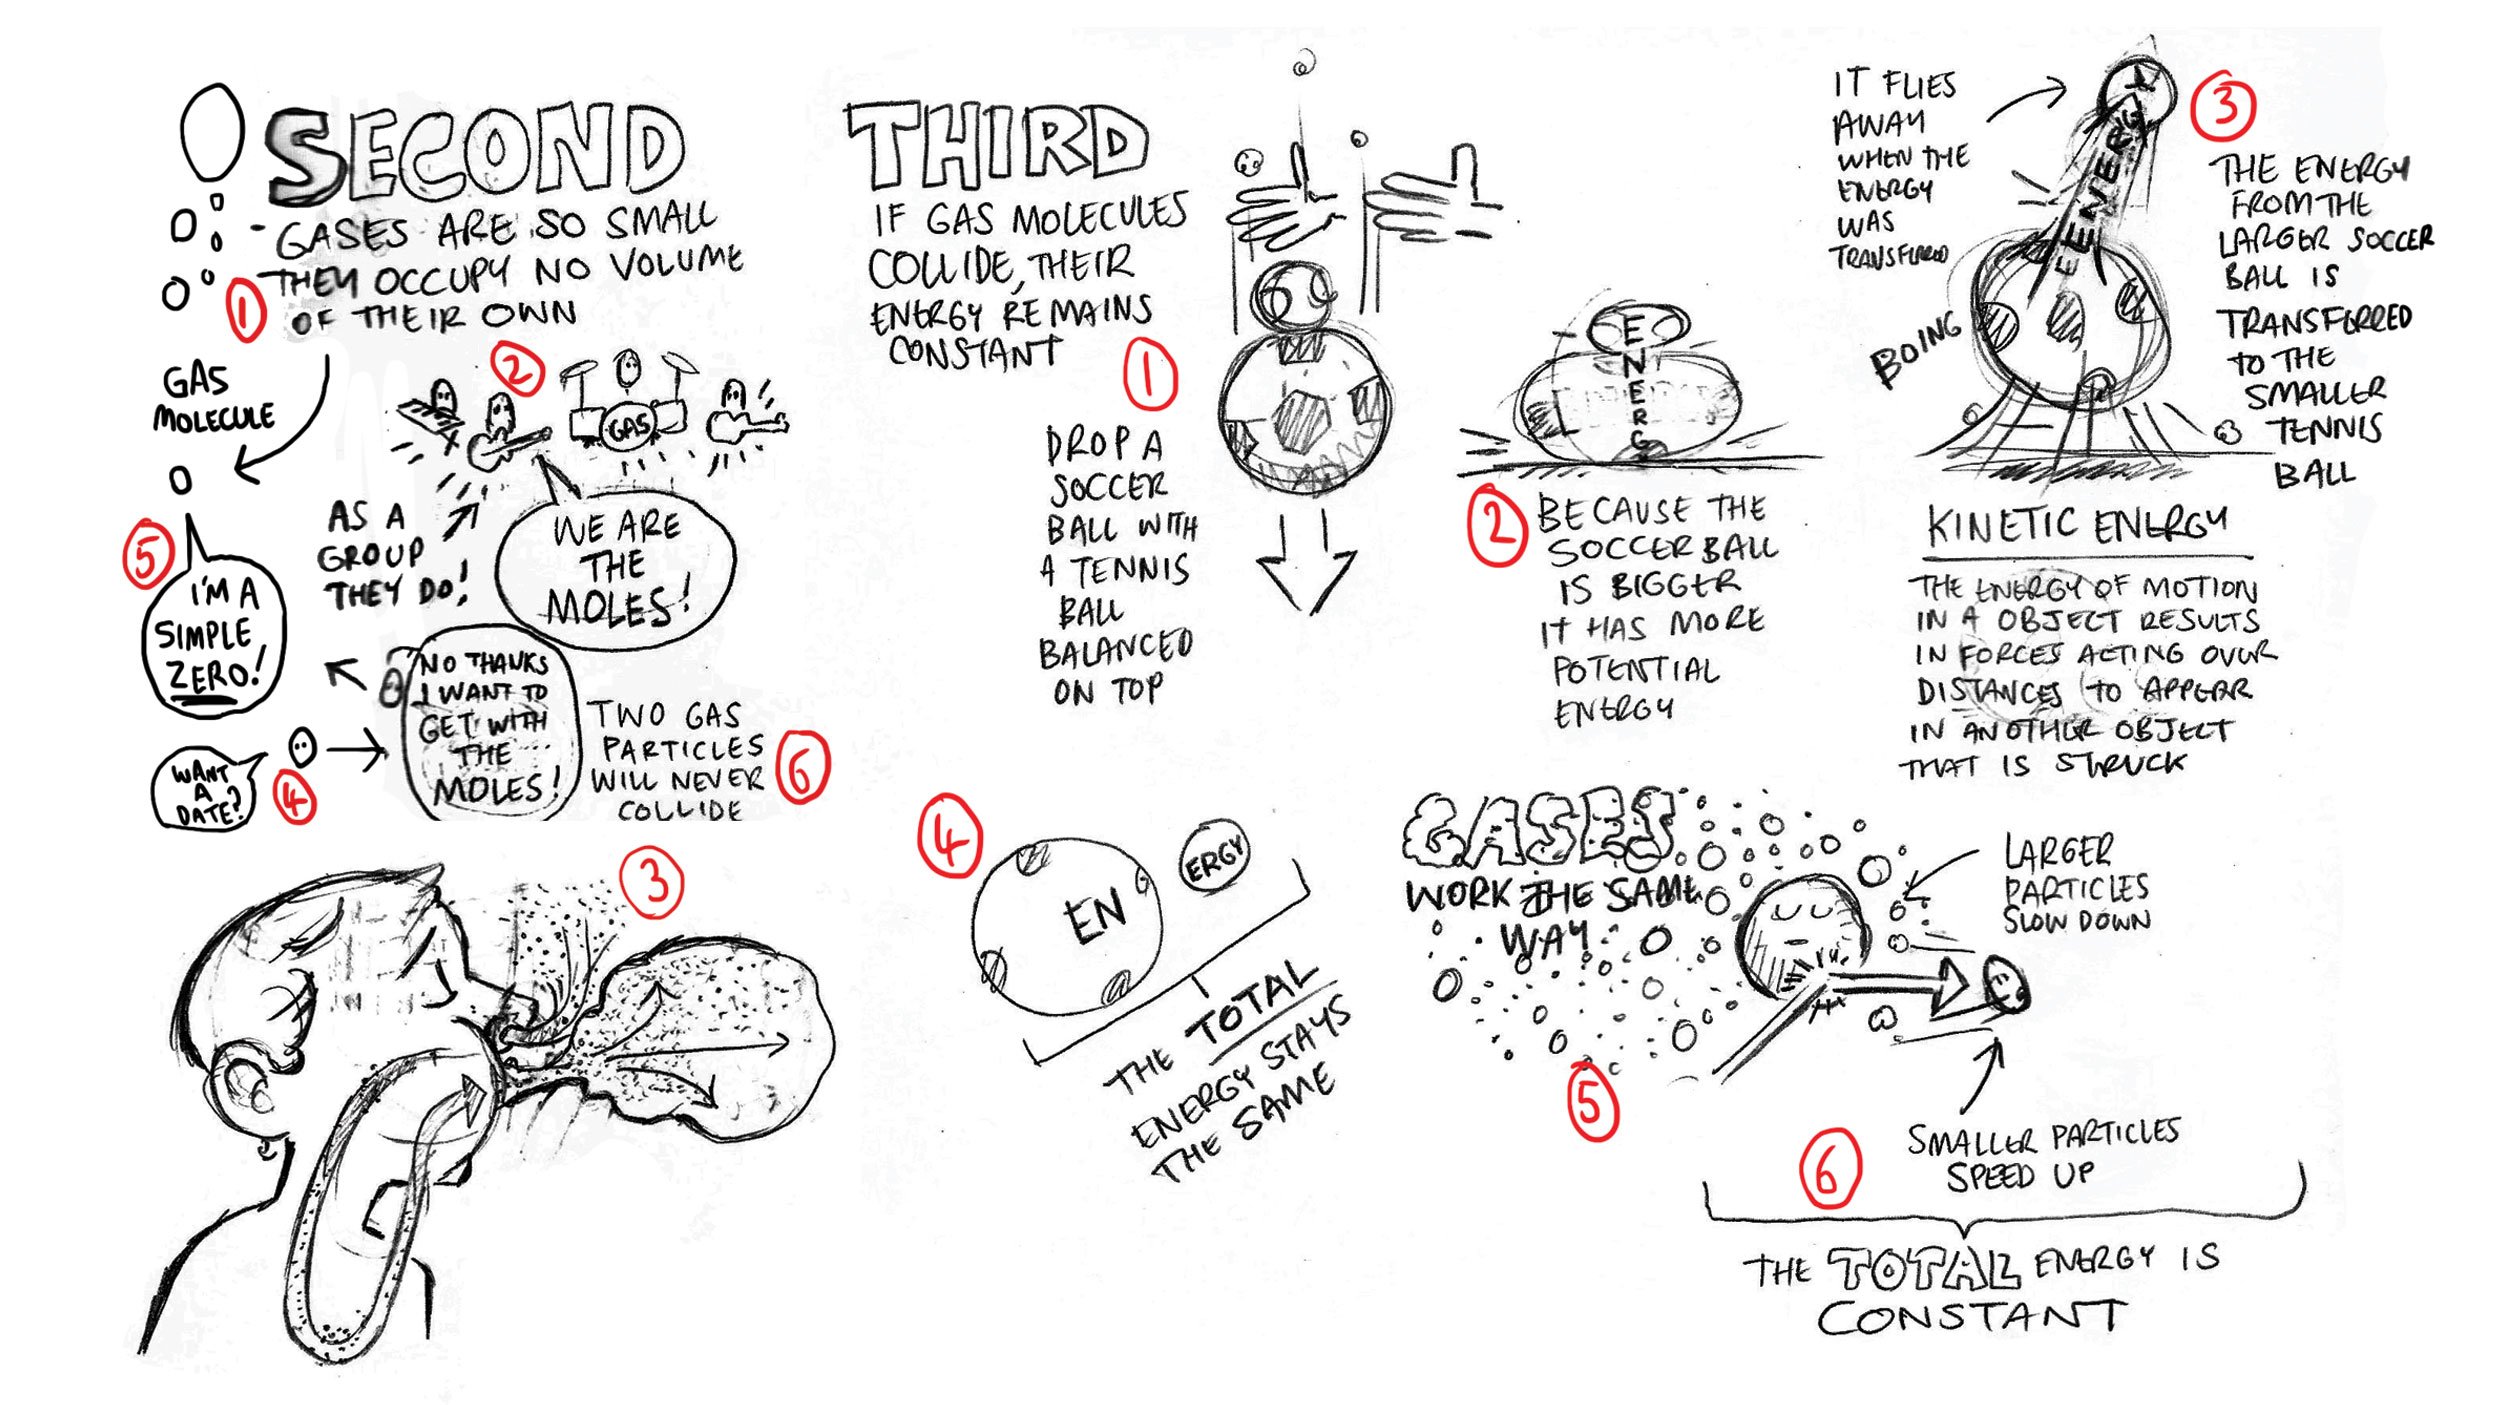 SECOND
- GASES ARE SO SMALL
THEY OCCUPY NO VOLUME
OF THEIR OWN
1
GAS
MOLECULE
2
GAS
AS A
GROUP
THEY DO!
WE ARE
THE
MOLES!
5
I'M A
SIMPLE
ZERO!
WANT
A
DATE?
4
NO THANKS
I WANT TO
GET WITH
THE
MOLES!
TWO GAS
PARTICLES
WILL NEVER
COLLIDE
6
3
THIRD
IF GAS MOLECULES
COLLIDE, THEIR
ENERGY REMAINS
CONSTANT
1
DROP A
SOCCER
BALL WITH
A TENNIS
BALL
BALANCED
ON TOP
ENERG
2
BECAUSE THE
SOCCER BALL
IS BIGGER
IT HAS MORE
POTENTIAL
ENERGY
IT FLIES
AWAY
WHEN THE
ENERGY
WAS
TRANSFERRED
ENERGY
BOING
3
THE ENERGY
FROM THE
LARGER SOCCER
BALL IS
TRANSFERRED
TO THE
SMALLER
TENNIS
BALL
KINETIC ENERGY
THE ENERGY OF MOTION
IN A OBJECT RESULTS
IN FORCES ACTING OVER
DISTANCES TO APPEAR
IN ANOTHER OBJECT
THAT IS STRUCK
4
EN
ERGY
THE TOTAL
ENERGY STAYS
THE SAME
GASES
WORK THE SAME
WAY
5
LARGER
PARTICLES
SLOW DOWN
SMALLER PARTICLES
SPEED UP
6
THE TOTAL ENERGY IS
CONSTANT